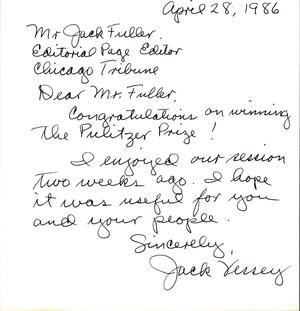 April 28, 1986
Mr Jack Fuller.
Editorial Page Editor
Chicago Tribune
Dear Mr. Fuller.
Congratulations on winning
the Pulitzer Prize !
I enjoyed our session
two weeks ago. I hope
it was useful for you
and your people.
Sincerely,
Jack Vessey